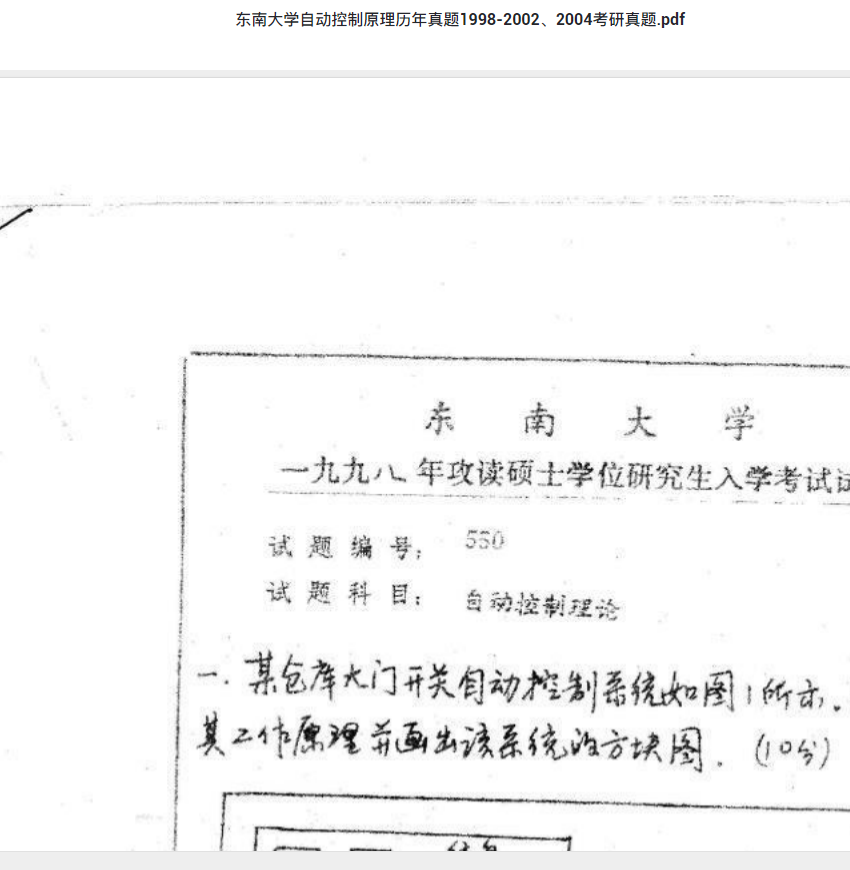 东南大学自动控制原理历年真题1998-2002、2004考研真题.pdf
东 南 大 学
一九九八年攻读硕士学位研究生入学考试试
试 题 编 号： 550
试 题 科 目： 自动控制理论
一. 某仓库大门开关自动控制系统如图1所示.
其工作原理并画出该系统的方块图. (10分)